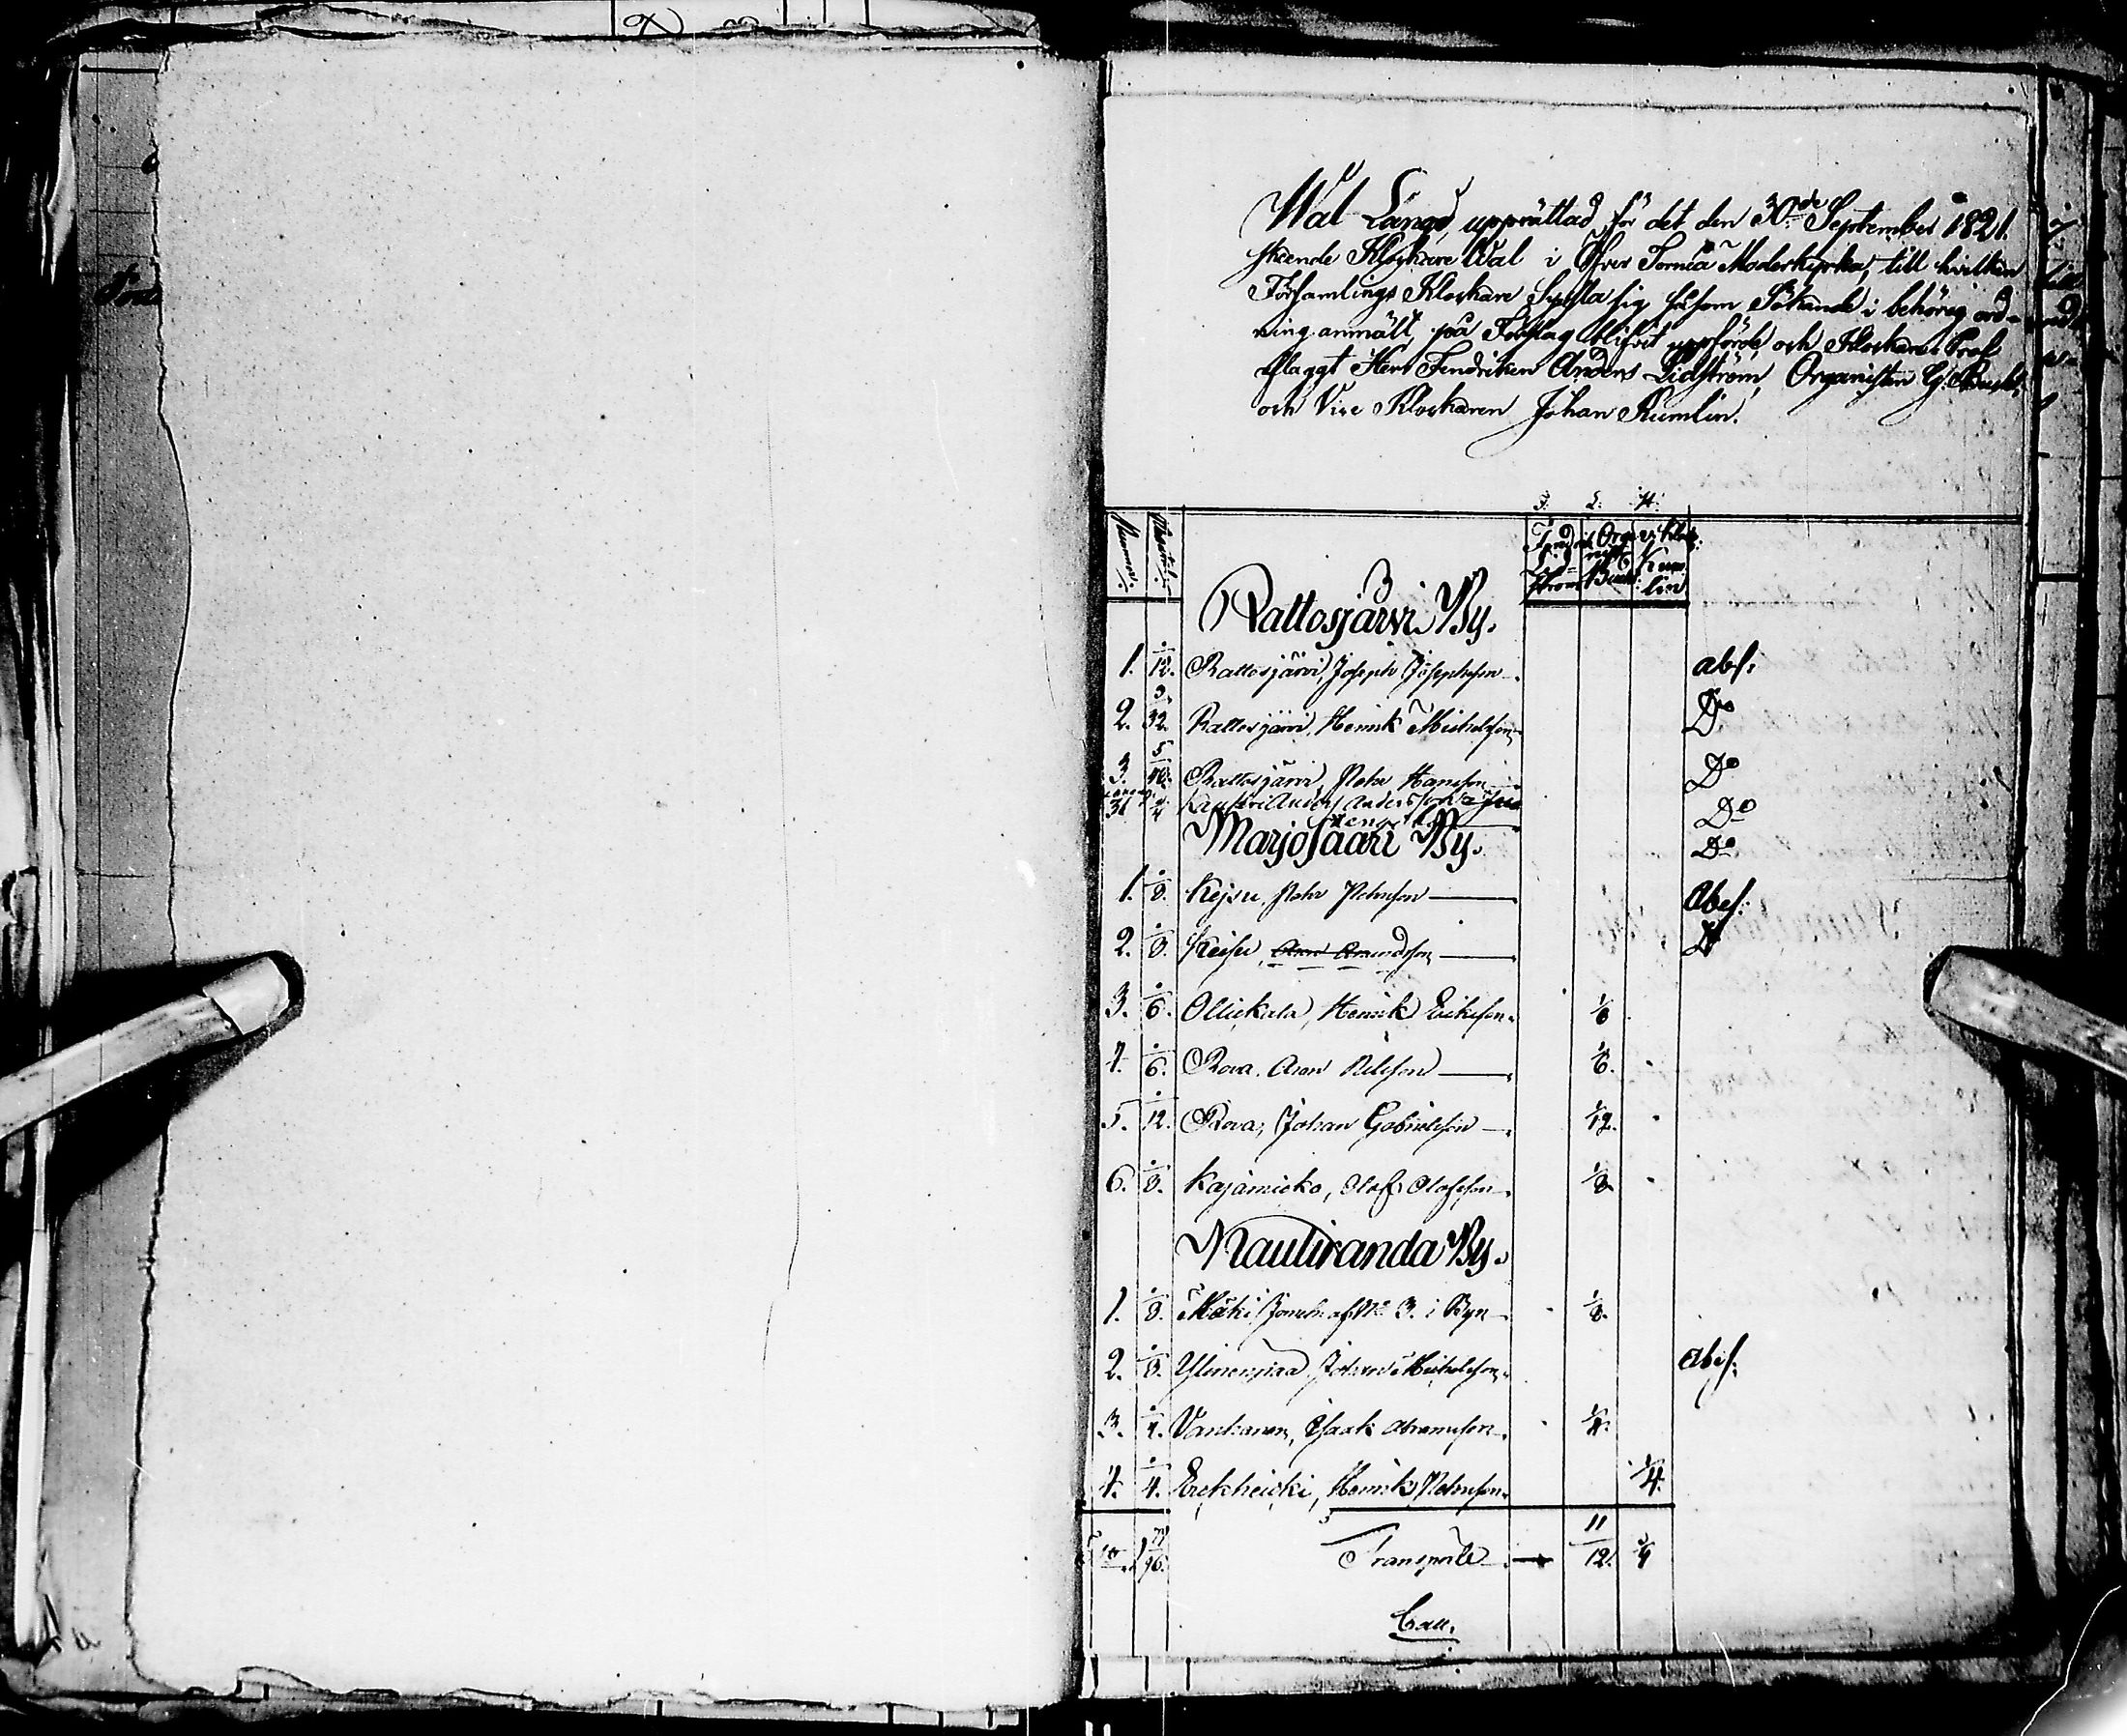 Wal Längd, upprättad för det den 30de September 1821.
skeende Klockare Wal i Öfver Torneå Moderkyrka, till hvilken
Församlings Klockare Syssla sig såsom Sökande i behörig ord-
ning anmält, på Förslag blifvit uppförde och Klockare Prof
aflaggt Herr Fendriken Anders Lidström, Organisten G. Bucht,
och Vice Klockaren Johan Kumlin.
3. 2. 4.
Nummer. Mantal. Fendrik Lidström Organist Bucht V. Klock: Kumlin
Rattosjärvi By.
1. 1/12. Rattosjärvi, Joseph Josephsson abs.
2. 3/32. Rattosjärvi, Henrik Michelsson Do
3. 5/48. Rattosjärvi, Petter Hansson Do
31 1/4 Anders Andersson Do
Marjosaari By. Do
1. 1/8. Kejsu, Petter Petersson Abs.
2. 1/8. Keisu, Aron Amundsson Do
3. 1/6. Ollickala, Henrik Ericksson 1/6
4. 1/6. Rova, Aron Nilsson 1/6.
5. 1/12. Rova, Johan Gabrielsson 1/12.
6. 1/8. Kajämicko, Olof Olofsson 1/8
Kauliranda By.
1. 1/8. Mäki, af No 3. i Byn 1/8.
2. 1/8. Ylinenpää, Johan Michelsson Abs.
3. 1/4. Vanhanen, Isaak Abramsson 1/4.
4. 1/4. Erckheicki, Henrik Petersson 1/4.
Transporte 11/12. 1/4